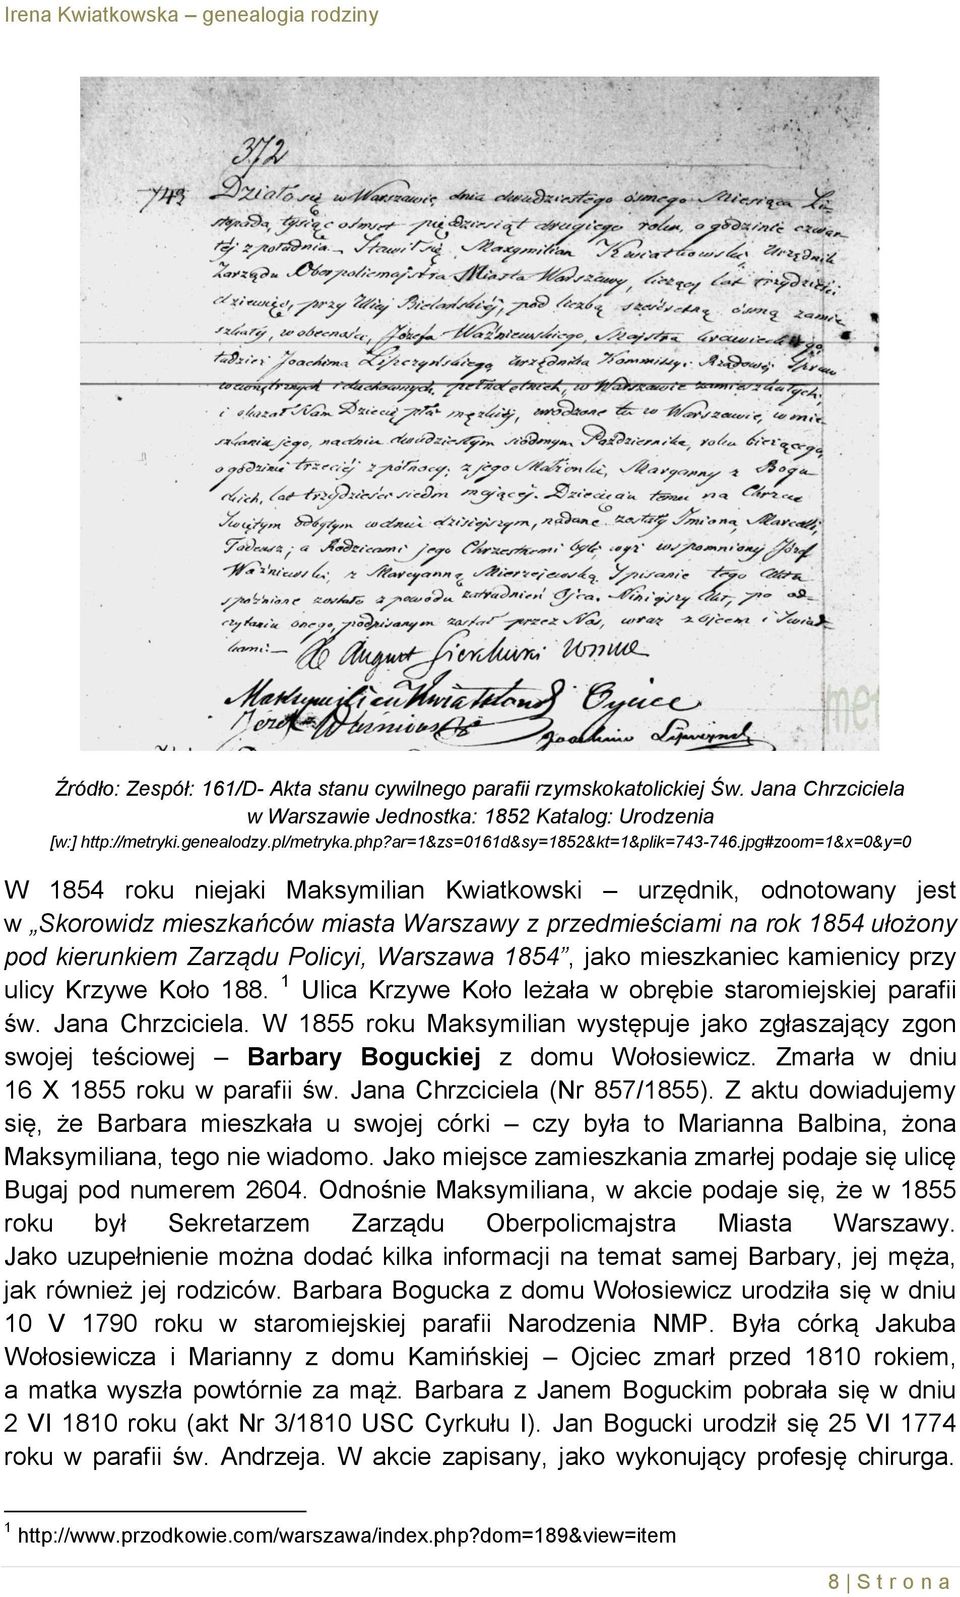 Irena Kwiatkowska – genealogia rodziny
372
743
Działo się w Warszawie dnia dwudziestego ósmego Miesiąca Li-
stopada, tysiąc ośmset pięćdziesiąt drugiego roku, o godzinie czwar-
tej z południa. Stawił się Maxymilian Kwiatkowski, Urzędnik
Zarządu Oberpolicmajstra Miasta Warszawy, liczący lat trzydzieści
dziewięć, przy Ulicy Bielańskiej, pod liczbą sześćsetną ósmą zamie-
szkały, w obecności, Józefa Waźniewskiego, Majstra krawieckiego,
tudzież Joachima Lipczyńskiego, Urzędnika Kommissyi Rządowej Spraw
wewnętrznych i duchownych, pełnoletnich, w Warszawie zamieszkałych
i okazał Nam Dziecię płci męzkiej, urodzone tu w Warszawie, w mie-
szkaniu jego, na dniu dwudziestym siódmym Października, roku bieżącego,
o godzinie trzeciej z północy, z jego Małżonki, Maryanny z Bogu-
ckich, lat trzydzieści siedm mającej. Dziecięciu temu na Chrzcie
Świętym odbytym w dniu dzisiejszym, nadane zostały Imiona, Marcelli,
Tadeusz; a Rodzicami jego Chrzestnemi byli, wyż wspomniony Józef
Waźniewski, z Maryanną Mierzejewską. Spisanie tego Aktu
spóźnione zostało z powodu zatrudnień Ojca. Niniejszy Akt, po od-
czytaniu onego, podpisanym został przez Nas, wraz z ojcem i Świad-
kami:—
X August
Maksymilien Kwiatkowski Oycice
Józef Warniewski
Joachim
met
Źródło: Zespół: 161/D- Akta stanu cywilnego parafii rzymskokatolickiej Św. Jana Chrzciciela
w Warszawie Jednostka: 1852 Katalog: Urodzenia
[w:] http://metryki.genealodzy.pl/metryka.php?ar=1&zs=0161d&sy=1852&kt=1&plik=743-746.jpg#zoom=1&x=0&y=0
W 1854 roku niejaki Maksymilian Kwiatkowski – urzędnik, odnotowany jest
w „Skorowidz mieszkańców miasta Warszawy z przedmieściami na rok 1854 ułożony
pod kierunkiem Zarządu Policyi, Warszawa 1854”, jako mieszkaniec kamienicy przy
ulicy Krzywe Koło 188. 1 Ulica Krzywe Koło leżała w obrębie staromiejskiej parafii
św. Jana Chrzciciela. W 1855 roku Maksymilian występuje jako zgłaszający zgon
swojej teściowej – Barbary Boguckiej z domu Wołosiewicz. Zmarła w dniu
16 X 1855 roku w parafii św. Jana Chrzciciela (Nr 857/1855). Z aktu dowiadujemy
się, że Barbara mieszkała u swojej córki – czy była to Marianna Balbina, żona
Maksymiliana, tego nie wiadomo. Jako miejsce zamieszkania zmarłej podaje się ulicę
Bugaj pod numerem 2604. Odnośnie Maksymiliana, w akcie podaje się, że w 1855
roku był Sekretarzem Zarządu Oberpolicmajstra Miasta Warszawy.
Jako uzupełnienie można dodać kilka informacji na temat samej Barbary, jej męża,
jak również jej rodziców. Barbara Bogucka z domu Wołosiewicz urodziła się w dniu
10 V 1790 roku w staromiejskiej parafii Narodzenia NMP. Była córką Jakuba
Wołosiewicza i Marianny z domu Kamińskiej – Ojciec zmarł przed 1810 rokiem,
a matka wyszła powtórnie za mąż. Barbara z Janem Boguckim pobrała się w dniu
2 VI 1810 roku (akt Nr 3/1810 USC Cyrkułu I). Jan Bogucki urodził się 25 VI 1774
roku w parafii św. Andrzeja. W akcie zapisany, jako wykonujący profesję chirurga.
1 http://www.przodkowie.com/warszawa/index.php?dom=189&view=item
8 | Strona